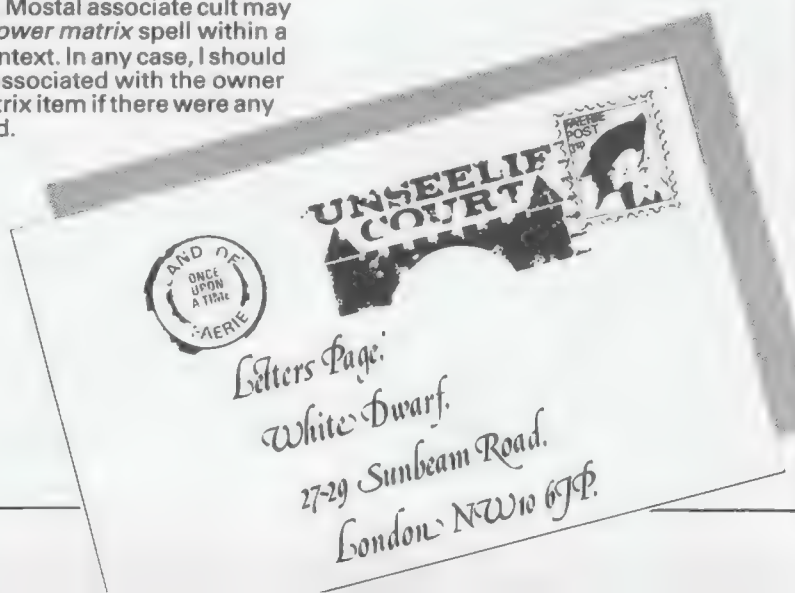 Mostal associate cult may
ower matrix spell within a
ntext. In any case, I should
ssociated with the owner
trix item if there were any
d.
UNSEELIE
COURT
FAERIE
POST
LAND OF
ONCE
UPON
A TIME
FAERIE
Letters Page,
White Dwarf,
27-29 Sunbeam Road,
London NW10 6JP.